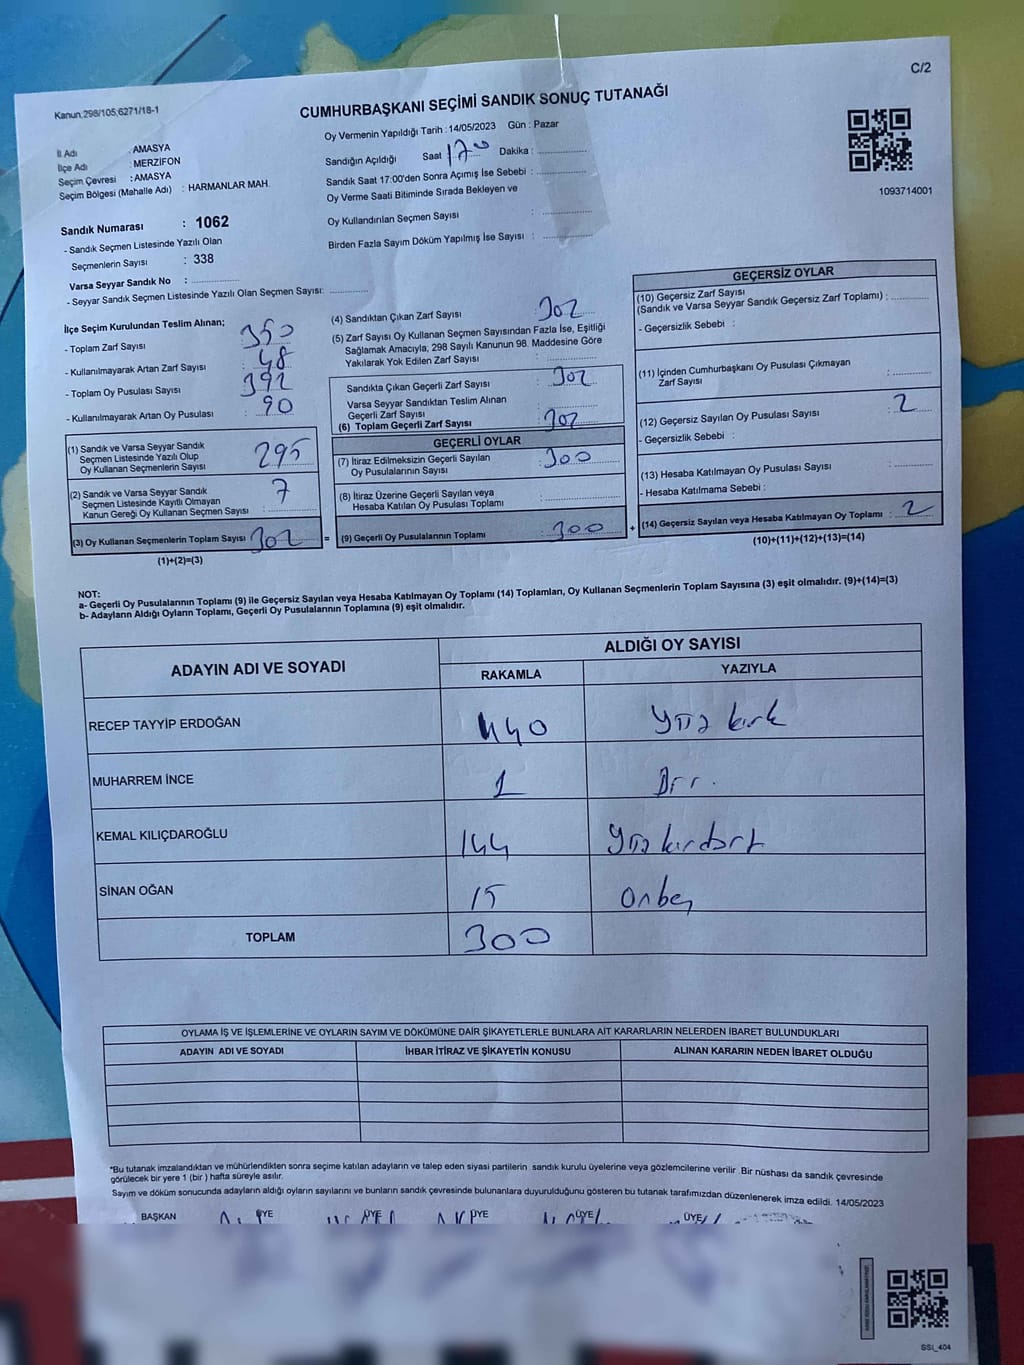 C/2
Kanun,298/105,6271/18-1
CUMHURBAŞKANI SEÇİMİ SANDIK SONUÇ TUTANAĞI
İl Adı : AMASYA
İlçe Adı : MERZİFON
Seçim Çevresi : AMASYA
Seçim Bölgesi (Mahalle Adı) : HARMANLAR MAH.
Oy Vermenin Yapıldığı Tarih : 14/05/2023 Gün : Pazar
Sandığın Açıldığı Saat 17 00 Dakika :
Sandık Saat 17:00'den Sonra Açımış İse Sebebi :
Oy Verme Saati Bitiminde Sırada Bekleyen ve
Oy Kullandırılan Seçmen Sayısı :
Birden Fazla Sayım Döküm Yapılmış İse Sayısı :
1093714001
Sandık Numarası : 1062
- Sandık Seçmen Listesinde Yazılı Olan
Seçmenlerin Sayısı : 338
Varsa Seyyar Sandık No :
- Seyyar Sandık Seçmen Listesinde Yazılı Olan Seçmen Sayısı:
İlçe Seçim Kurulundan Teslim Alınan;
- Toplam Zarf Sayısı : 350
- Kullanılmayarak Artan Zarf Sayısı : 48
- Toplam Oy Pusulası Sayısı : 392
- Kullanılmayarak Artan Oy Pusulası : 90
(1) Sandık ve Varsa Seyyar Sandık
Seçmen Listesinde Yazılı Olup
Oy Kullanan Seçmenlerin Sayısı : 295
(2) Sandık ve Varsa Seyyar Sandık
Seçmen Listesinde Kayıtlı Olmayan
Kanun Gereği Oy Kullanan Seçmen Sayısı : 7
(3) Oy Kullanan Seçmenlerin Toplam Sayısı : 302
(1)+(2)=(3)
(4) Sandıktan Çıkan Zarf Sayısı : 302
(5) Zarf Sayısı Oy Kullanan Seçmen Sayısından Fazla İse, Eşitliği
Sağlamak Amacıyla, 298 Sayılı Kanunun 98. Maddesine Göre
Yakılarak Yok Edilen Zarf Sayısı :
Sandıkta Çıkan Geçerli Zarf Sayısı : 302
Varsa Seyyar Sandıktan Teslim Alınan
Geçerli Zarf Sayısı :
(6) Toplam Geçerli Zarf Sayısı : 302
GEÇERLİ OYLAR
(7) İtiraz Edilmeksizin Geçerli Sayılan
Oy Pusulalarının Sayısı : 300
(8) İtiraz Üzerine Geçerli Sayılan veya
Hesaba Katılan Oy Pusulası Toplamı :
= (9) Geçerli Oy Pusulalarının Toplamı : 300 +
GEÇERSİZ OYLAR
(10) Geçersiz Zarf Sayısı
(Sandık ve Varsa Seyyar Sandık Geçersiz Zarf Toplamı) :
- Geçersizlik Sebebi :
(11) İçinden Cumhurbaşkanı Oy Pusulası Çıkmayan
Zarf Sayısı :
(12) Geçersiz Sayılan Oy Pusulası Sayısı : 2
- Geçersizlik Sebebi :
(13) Hesaba Katılmayan Oy Pusulası Sayısı :
- Hesaba Katılmama Sebebi :
(14) Geçersiz Sayılan veya Hesaba Katılmayan Oy Toplamı : 2
(10)+(11)+(12)+(13)=(14)
NOT:
a- Geçerli Oy Pusulalarının Toplamı (9) ile Geçersiz Sayılan veya Hesaba Katılmayan Oy Toplamı (14) Toplamları, Oy Kullanan Seçmenlerin Toplam Sayısına (3) eşit olmalıdır. (9)+(14)=(3)
b- Adayların Aldığı Oyların Toplamı, Geçerli Oy Pusulalarının Toplamına (9) eşit olmalıdır.
ADAYIN ADI VE SOYADI ALDIĞI OY SAYISI
RAKAMLA YAZIYLA
RECEP TAYYİP ERDOĞAN 140 Yüz kırk
MUHARREM İNCE 1 Bir.
KEMAL KILIÇDAROĞLU 144 Yüz kırdört
SİNAN OĞAN 15 onbeş
TOPLAM 300
OYLAMA İŞ VE İŞLEMLERİNE VE OYLARIN SAYIM VE DÖKÜMÜNE DAİR ŞİKAYETLERLE BUNLARA AİT KARARLARIN NELERDEN İBARET BULUNDUKLARI
ADAYIN ADI VE SOYADI İHBAR İTİRAZ VE ŞİKAYETİN KONUSU ALINAN KARARIN NEDEN İBARET OLDUĞU
*Bu tutanak imzalandıktan ve mühürlendikten sonra seçime katılan adayların ve talep eden siyasi partilerin sandık kurulu üyelerine veya gözlemcilerine verilir .Bir nüshası da sandık çevresinde
görülecek bir yere 1 (bir ) hafta süreyle asılır.
Sayım ve döküm sonucunda adayların aldığı oyların sayılarını ve bunların sandık çevresinde bulunanlara duyurulduğunu gösteren bu tutanak tarafımızdan düzenlenerek imza edildi. 14/05/2023
BAŞKAN ÜYE ÜYE ÜYE ÜYE ÜYE
SSİ_404